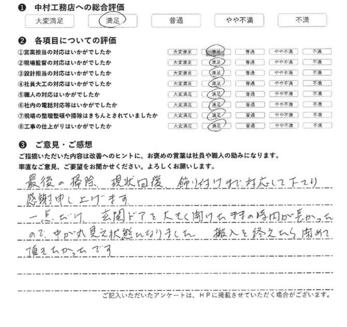 ❶ 中村工務店への総合評価
大変満足 満足 普通 やや不満 不満
❷ 各項目についての評価
①営業担当の対応はいかがでしたか 大変満足 満足 普通 やや不満 不満
②現場監督の対応はいかがでしたか 大変満足 満足 普通 やや不満 不満
③設計担当の対応はいかがでしたか 大変満足 満足 普通 やや不満 不満
④社員大工の対応はいかがでしたか 大変満足 満足 普通 やや不満 不満
⑤職人の対応はいかがでしたか 大変満足 満足 普通 やや不満 不満
⑥社内の電話対応等はいかがでしたか 大変満足 満足 普通 やや不満 不満
⑦現場の整理整頓や掃除はきちんとされていましたか 大変満足 満足 普通 やや不満 不満
⑧工事の仕上がりはいかがでしたか 大変満足 満足 普通 やや不満 不満
❸ ご意見・ご感想
ご指摘いただいた内容は改善へのヒントに、お褒めの言葉は社員や職人の励みになります。
率直なご意見、ご要望をお聞かせください。よろしくお願いします。
最後の掃除 現状回復 飾り付けまで対応して下さり
感謝申し上げます
一点だけ 玄関ドアを大きく開けたままの時間が長かった
ので 中が丸見え状態になりました 搬入を終えたら閉めて
頂きたかったです
ご記入いただいたアンケートは、HPに掲載させていただく場合がございます。